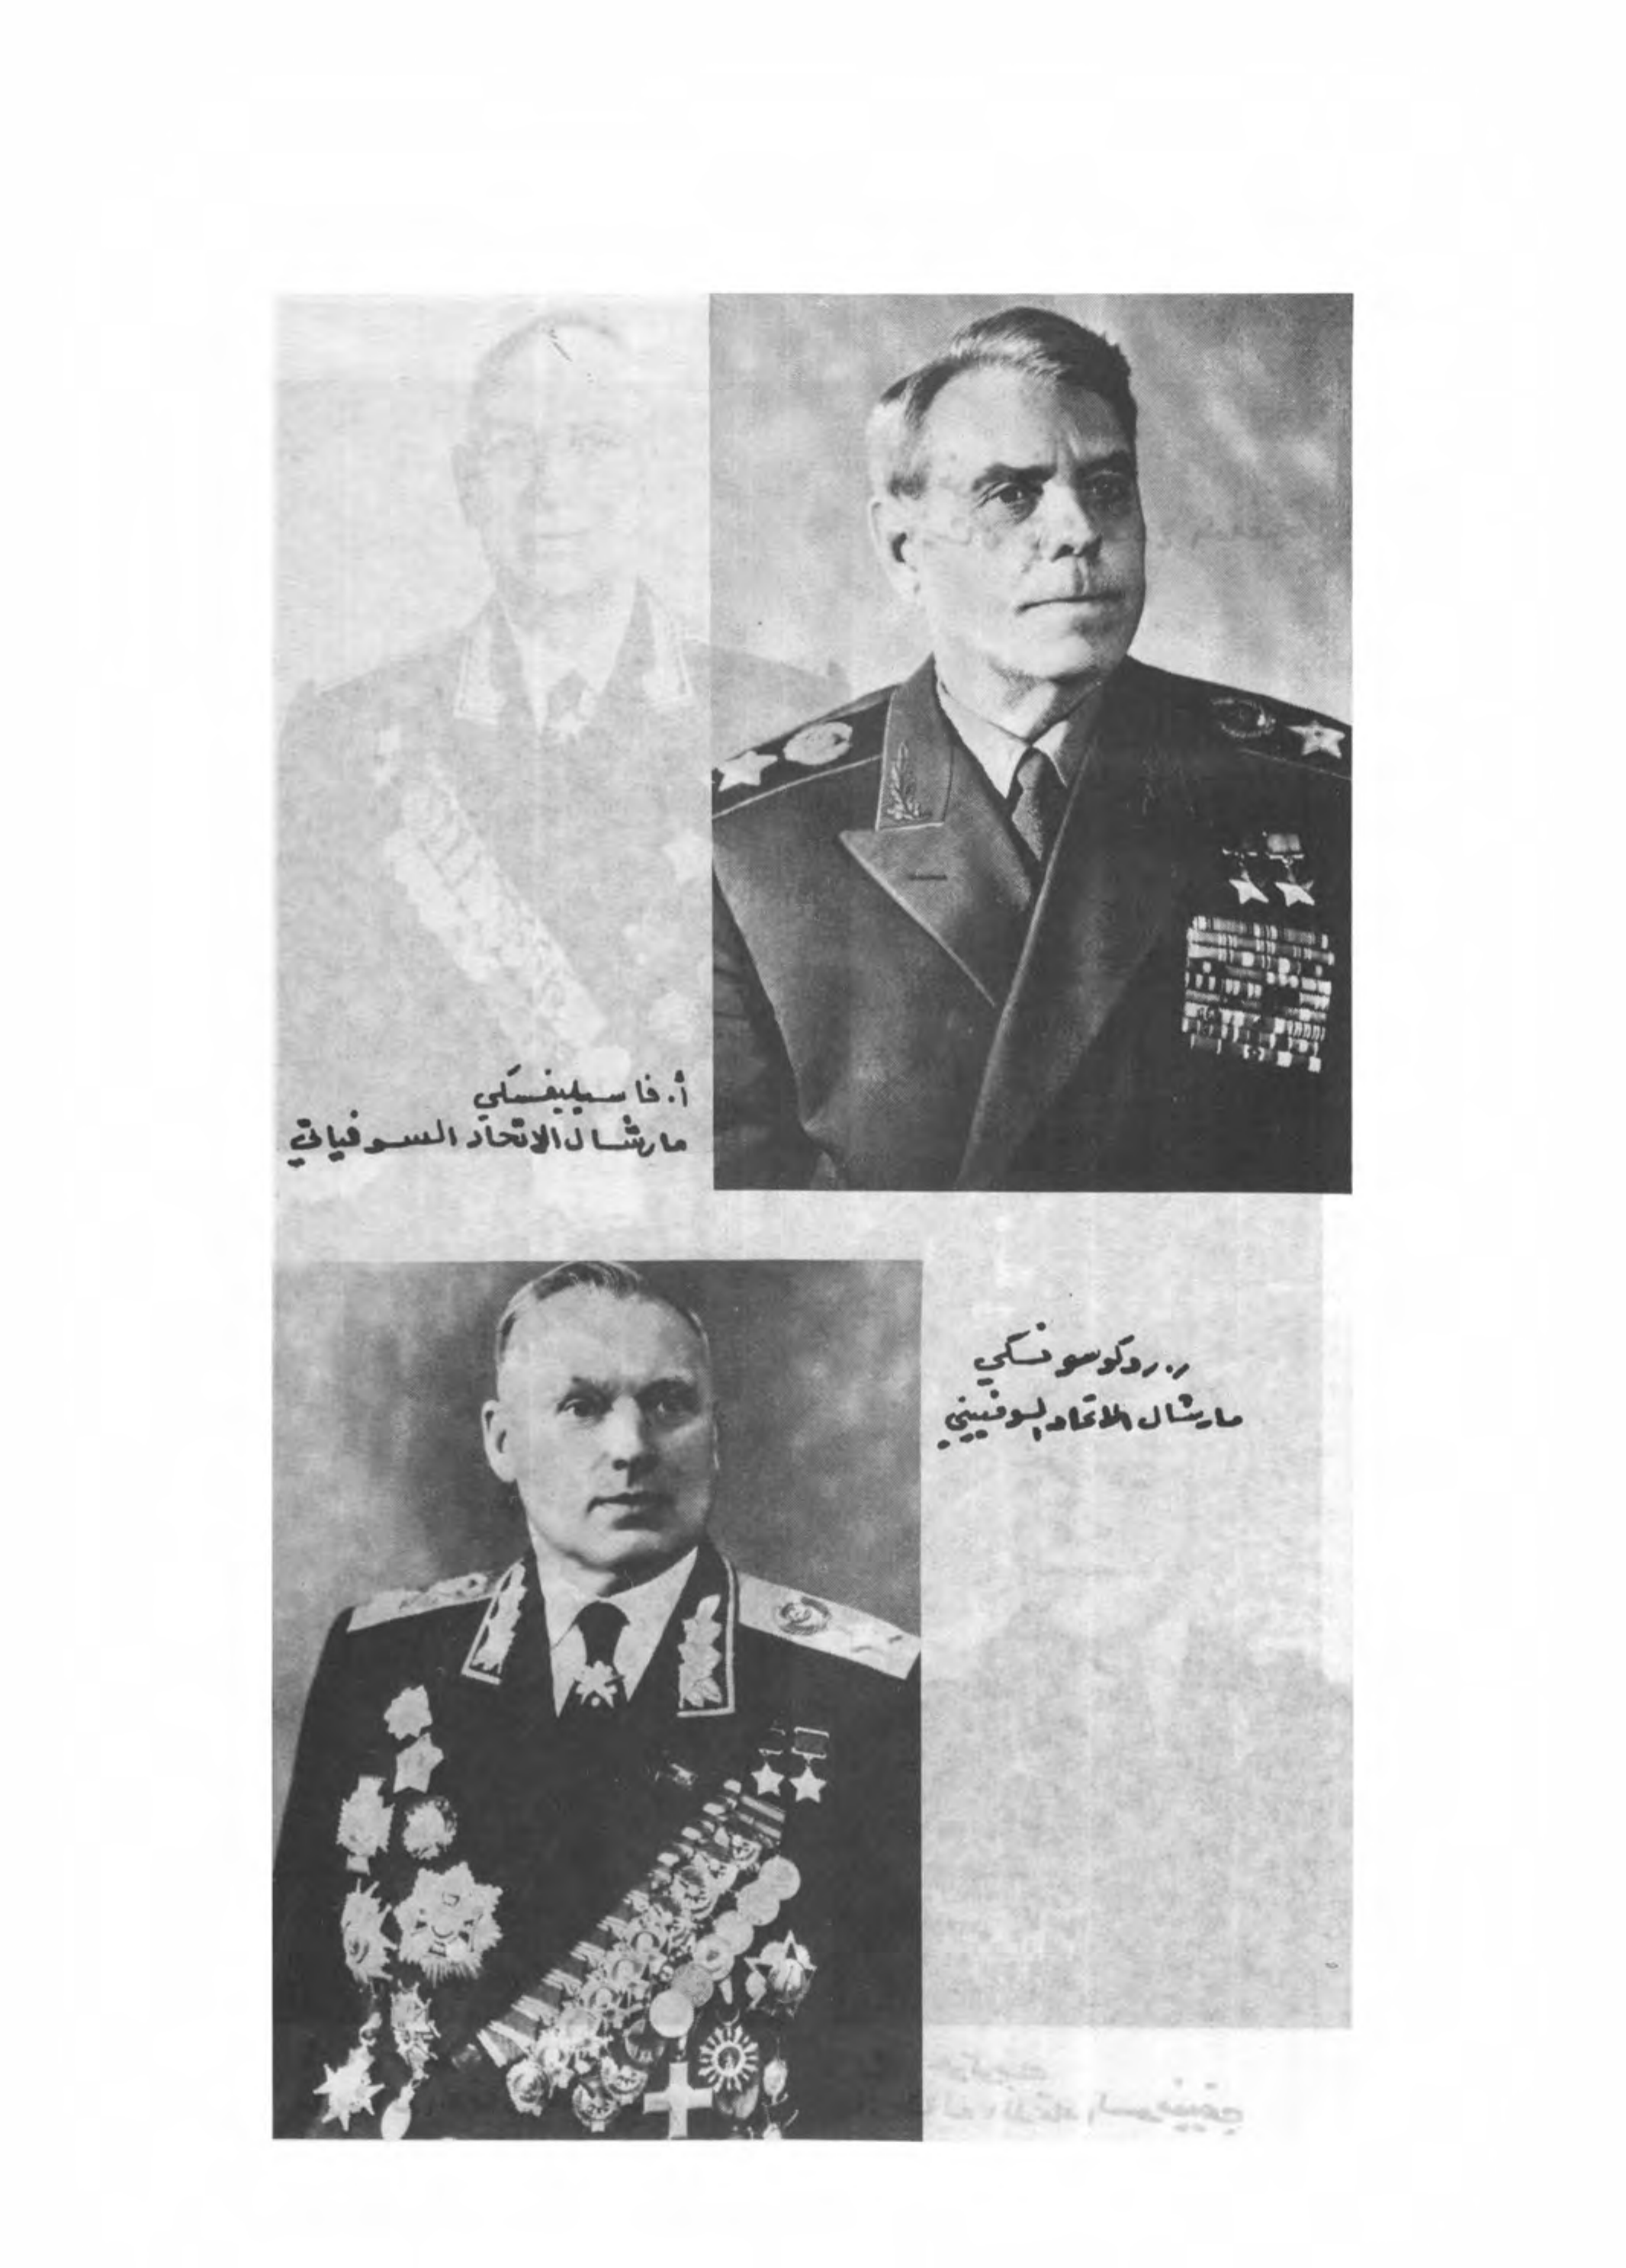 أ. فاسيليفسكي
مارشال الاتحاد السوفياتي
ر. روكوسوفسكي
مارشال الاتحاد السوفييتي